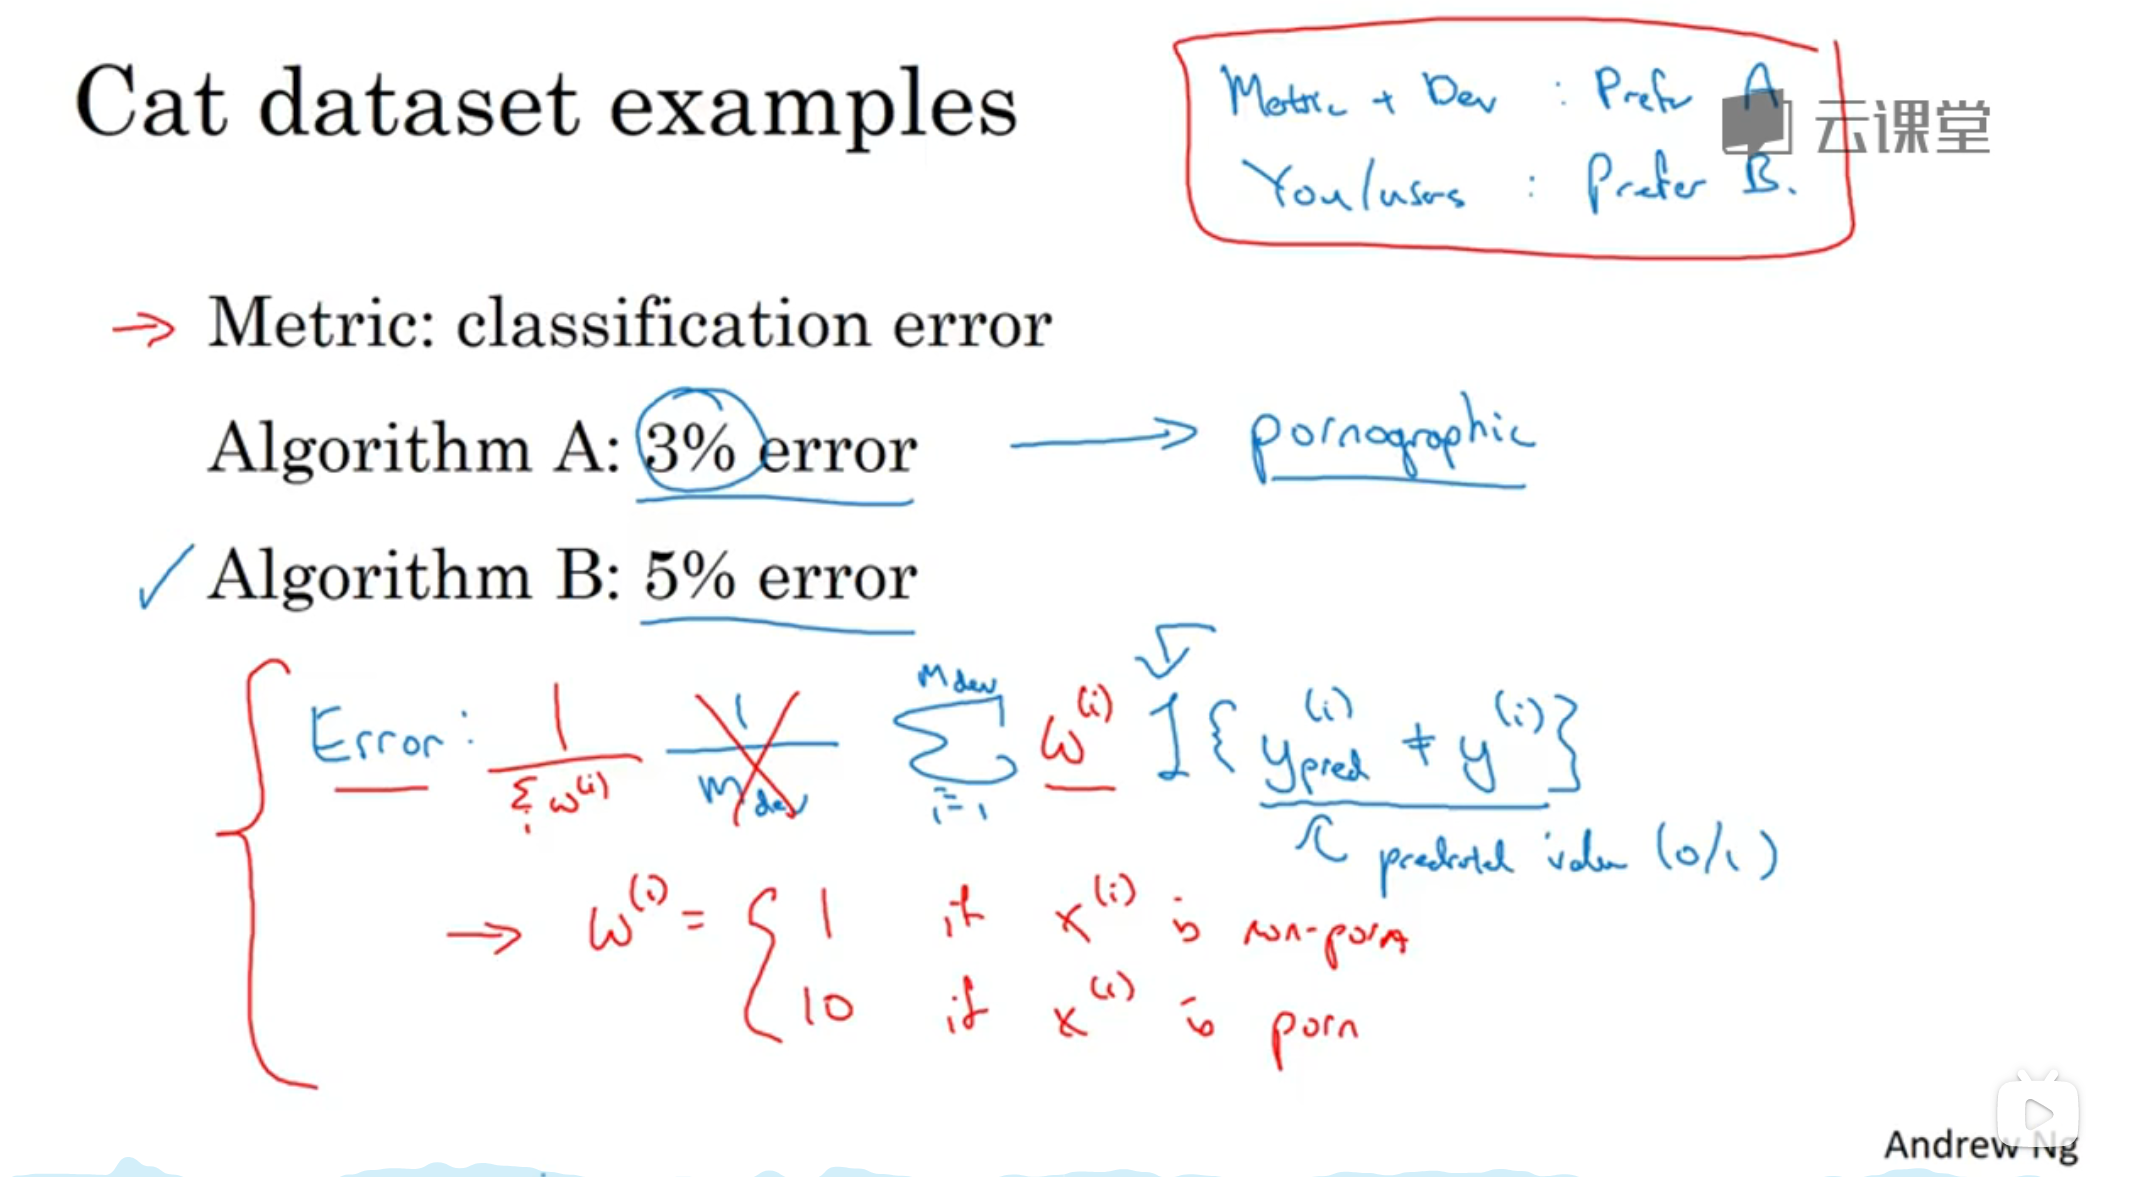 Cat dataset examples
Metric + Dev : Prefer A
You/users : Prefer B.
云课堂
→ Metric: classification error
Algorithm A: 3% error → pornographic
✓ Algorithm B: 5% error
Error: 1/Σᵢ w⁽ⁱ⁾ 1/m_dev Σ_{i=1}^{m_dev} w⁽ⁱ⁾ I{y_pred⁽ⁱ⁾ ≠ y⁽ⁱ⁾}
predicted value (0/1)
→ w⁽ⁱ⁾ = { 1 if x⁽ⁱ⁾ is non-porn
10 if x⁽ⁱ⁾ is porn
Andrew Ng